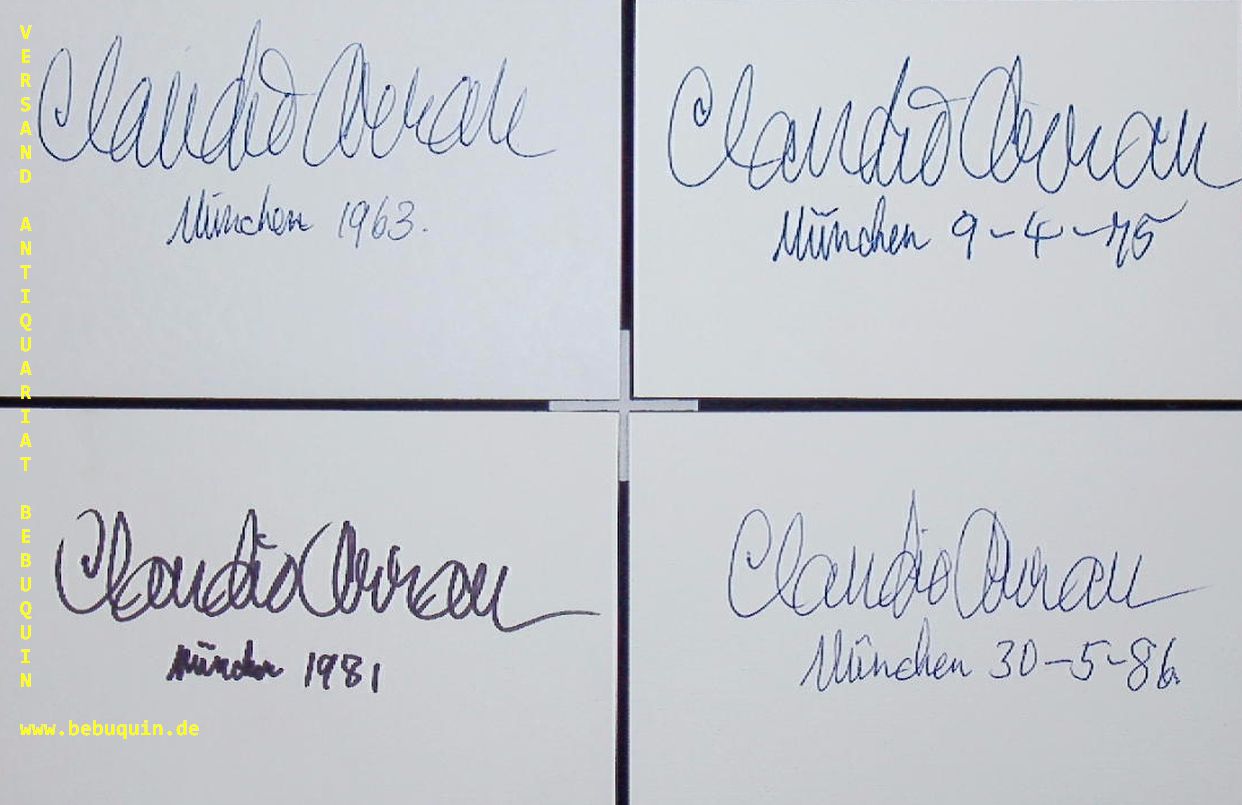 VERSAND ANTIQUARIAT BEBUQUIN
Claudio Arrau
München 1963.
Claudio Arrau
München 9-4-75
Claudio Arrau
München 1981
Claudio Arrau
München 30-5-86.
www.bebuquin.de